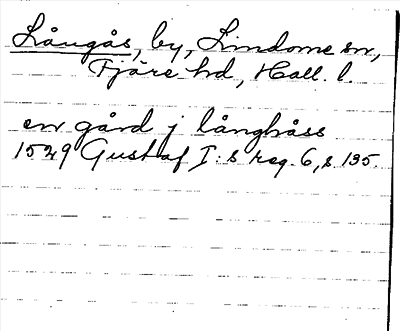 Långås, by, Lindome sn,
Fjäre hd, Hall. l.
en gård j långhåss
1529 Gustaf I:s reg. 6, s 135.